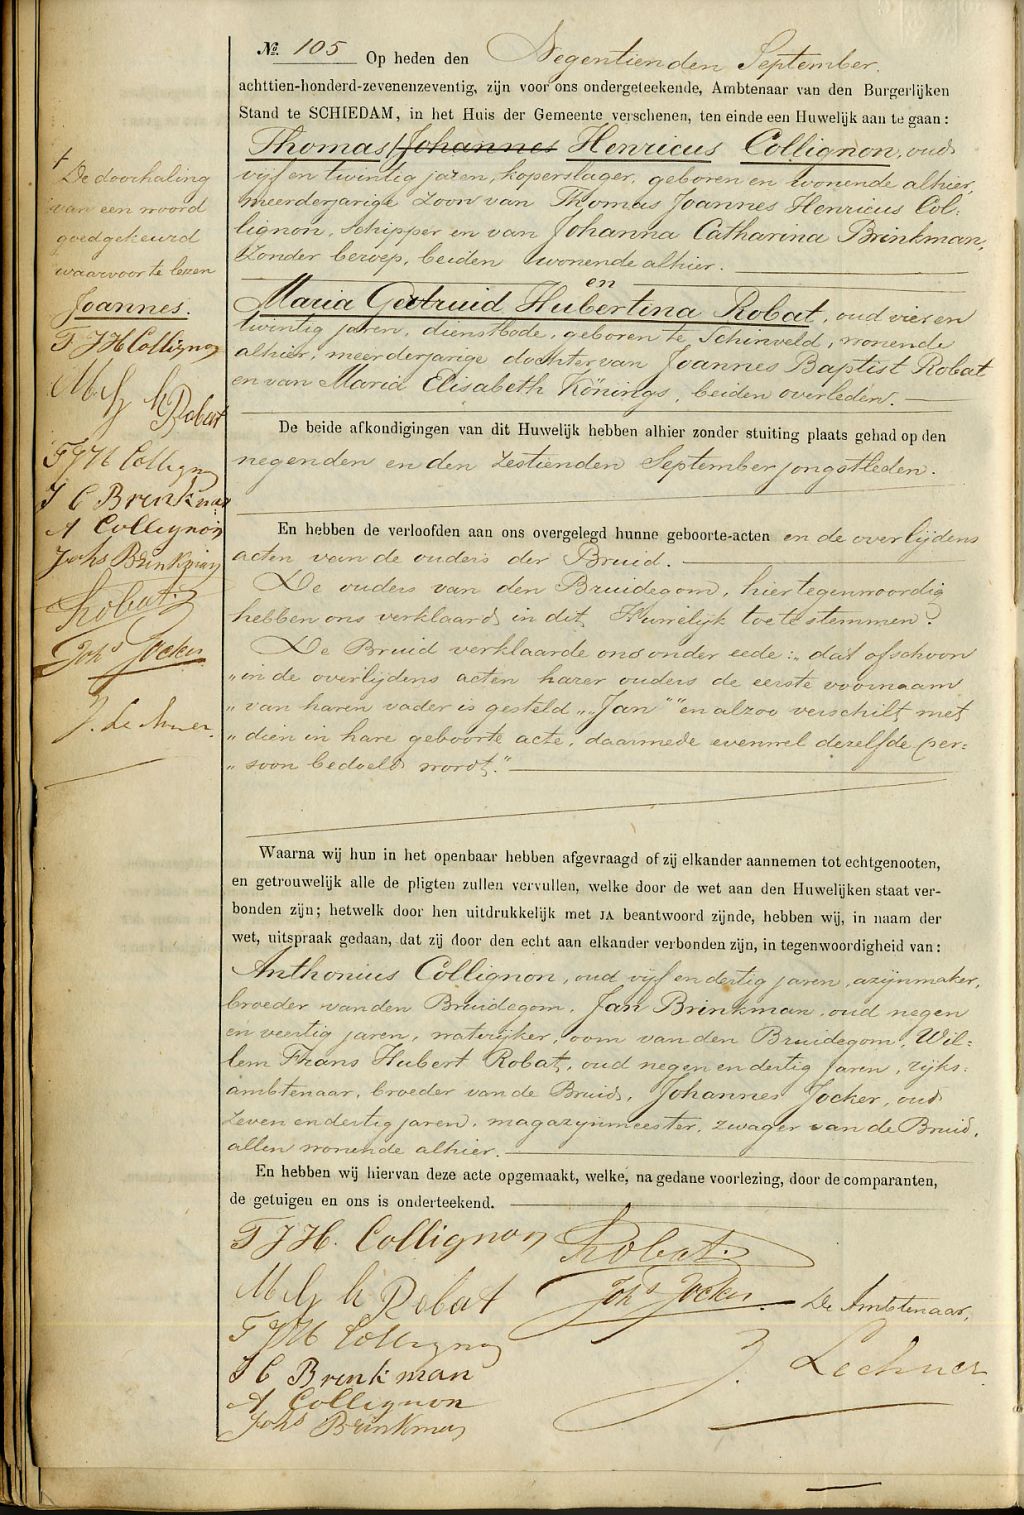 №. 105 Op heden den Negentienden September.
achttien-honderd-zevenenzeventig, zijn voor ons ondergeteekende, Ambtenaar van den Burgerlijken
Stand te SCHIEDAM, in het Huis der Gemeente verschenen, ten einde een Huwelijk aan te gaan:
Thomas / Johannes Henricus Collignon, oud
vijf en twintig jaren, koperslager, geboren en wonende alhier,
meerderjarige Zoon van Thomas Joannes Henricus Col-
lignon, schipper en van Johanna Catharina Brinkman,
Zonder beroep, beiden wonende alhier.
en
Maria Gertruid Hubertina Robat, oud vier en
twintig jaren, dienstbode, geboren te Schinveld, wonende
alhier, meerderjarige dochter van Joannes Baptist Robat
en van Maria Elisabeth Könings, beiden overleden.
De beide afkondigingen van dit Huwelijk hebben alhier zonder stuiting plaats gehad op den
negenden en den zestienden September jongstleden.
En hebben de verloofden aan ons overgelegd hunne geboorte-acten en de overlijdens
acten van de ouders der Bruid.
De ouders van den Bruidegom, hier tegenwoordig
hebben ons verklaard in dit Huwelijk toe te stemmen.
De Bruid verklaarde ons onder eede: „dat ofschoon
„in de overlijdens acten harer ouders de eerste voornaam
„van haren vader is gesteld „„Jan"" en alzoo verschilt met
„dien in hare geboorte acte, daarmede evenwel dezelfde per-
„soon bedoeld wordt."
Waarna wij hun in het openbaar hebben afgevraagd of zij elkander aannemen tot echtgenooten,
en getrouwelijk alle de pligten zullen vervullen, welke door de wet aan den Huwelijken staat ver-
bonden zijn; hetwelk door hen uitdrukkelijk met JA beantwoord zijnde, hebben wij, in naam der
wet, uitspraak gedaan, dat zij door den echt aan elkander verbonden zijn, in tegenwoordigheid van:
Anthonius Collignon, oud vijf en dertig jaren, azijnmaker,
broeder van den Bruidegom, Jan Brinkman, oud negen
en veertig jaren, matwijker, oom van den Bruidegom, Wil-
lem Frans Hubert Robat, oud negen en dertig jaren, rijks-
ambtenaar, broeder van de Bruid, Johannes Jocker, oud
zeven en dertig jaren, magazijnmeester, zwager van de Bruid,
allen wonende alhier.
En hebben wij hiervan deze acte opgemaakt, welke, na gedane voorlezing, door de comparanten,
de getuigen en ons is onderteekend.
T J H. Collignon
Robat.
M G h Robat
Johs Jocker.
De Ambtenaar,
T J H Collignon
J. Lechner.
J C Brinkman
A Collignon
Johs Brinkman
De doorhaling
van een woord
goedgekeurd
waarvoor te lezen
Joannes.
T J H Collignon
M G h Robat
T J H Collignon
J C Brinkman
A Collignon
Johs Brinkman
Robat.
Johs Jocker
J. Lechner.